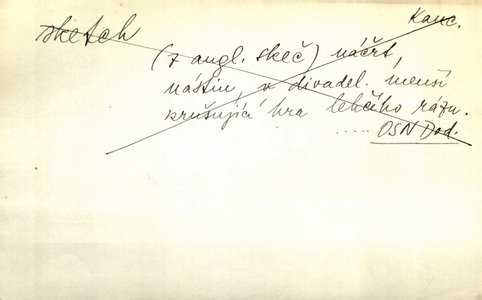 Kanc.
sketch
(z angl. skeč) náčrt,
nástin, v divadel. menší
krušující hra lehčího rázu.
..... OSN Dod.